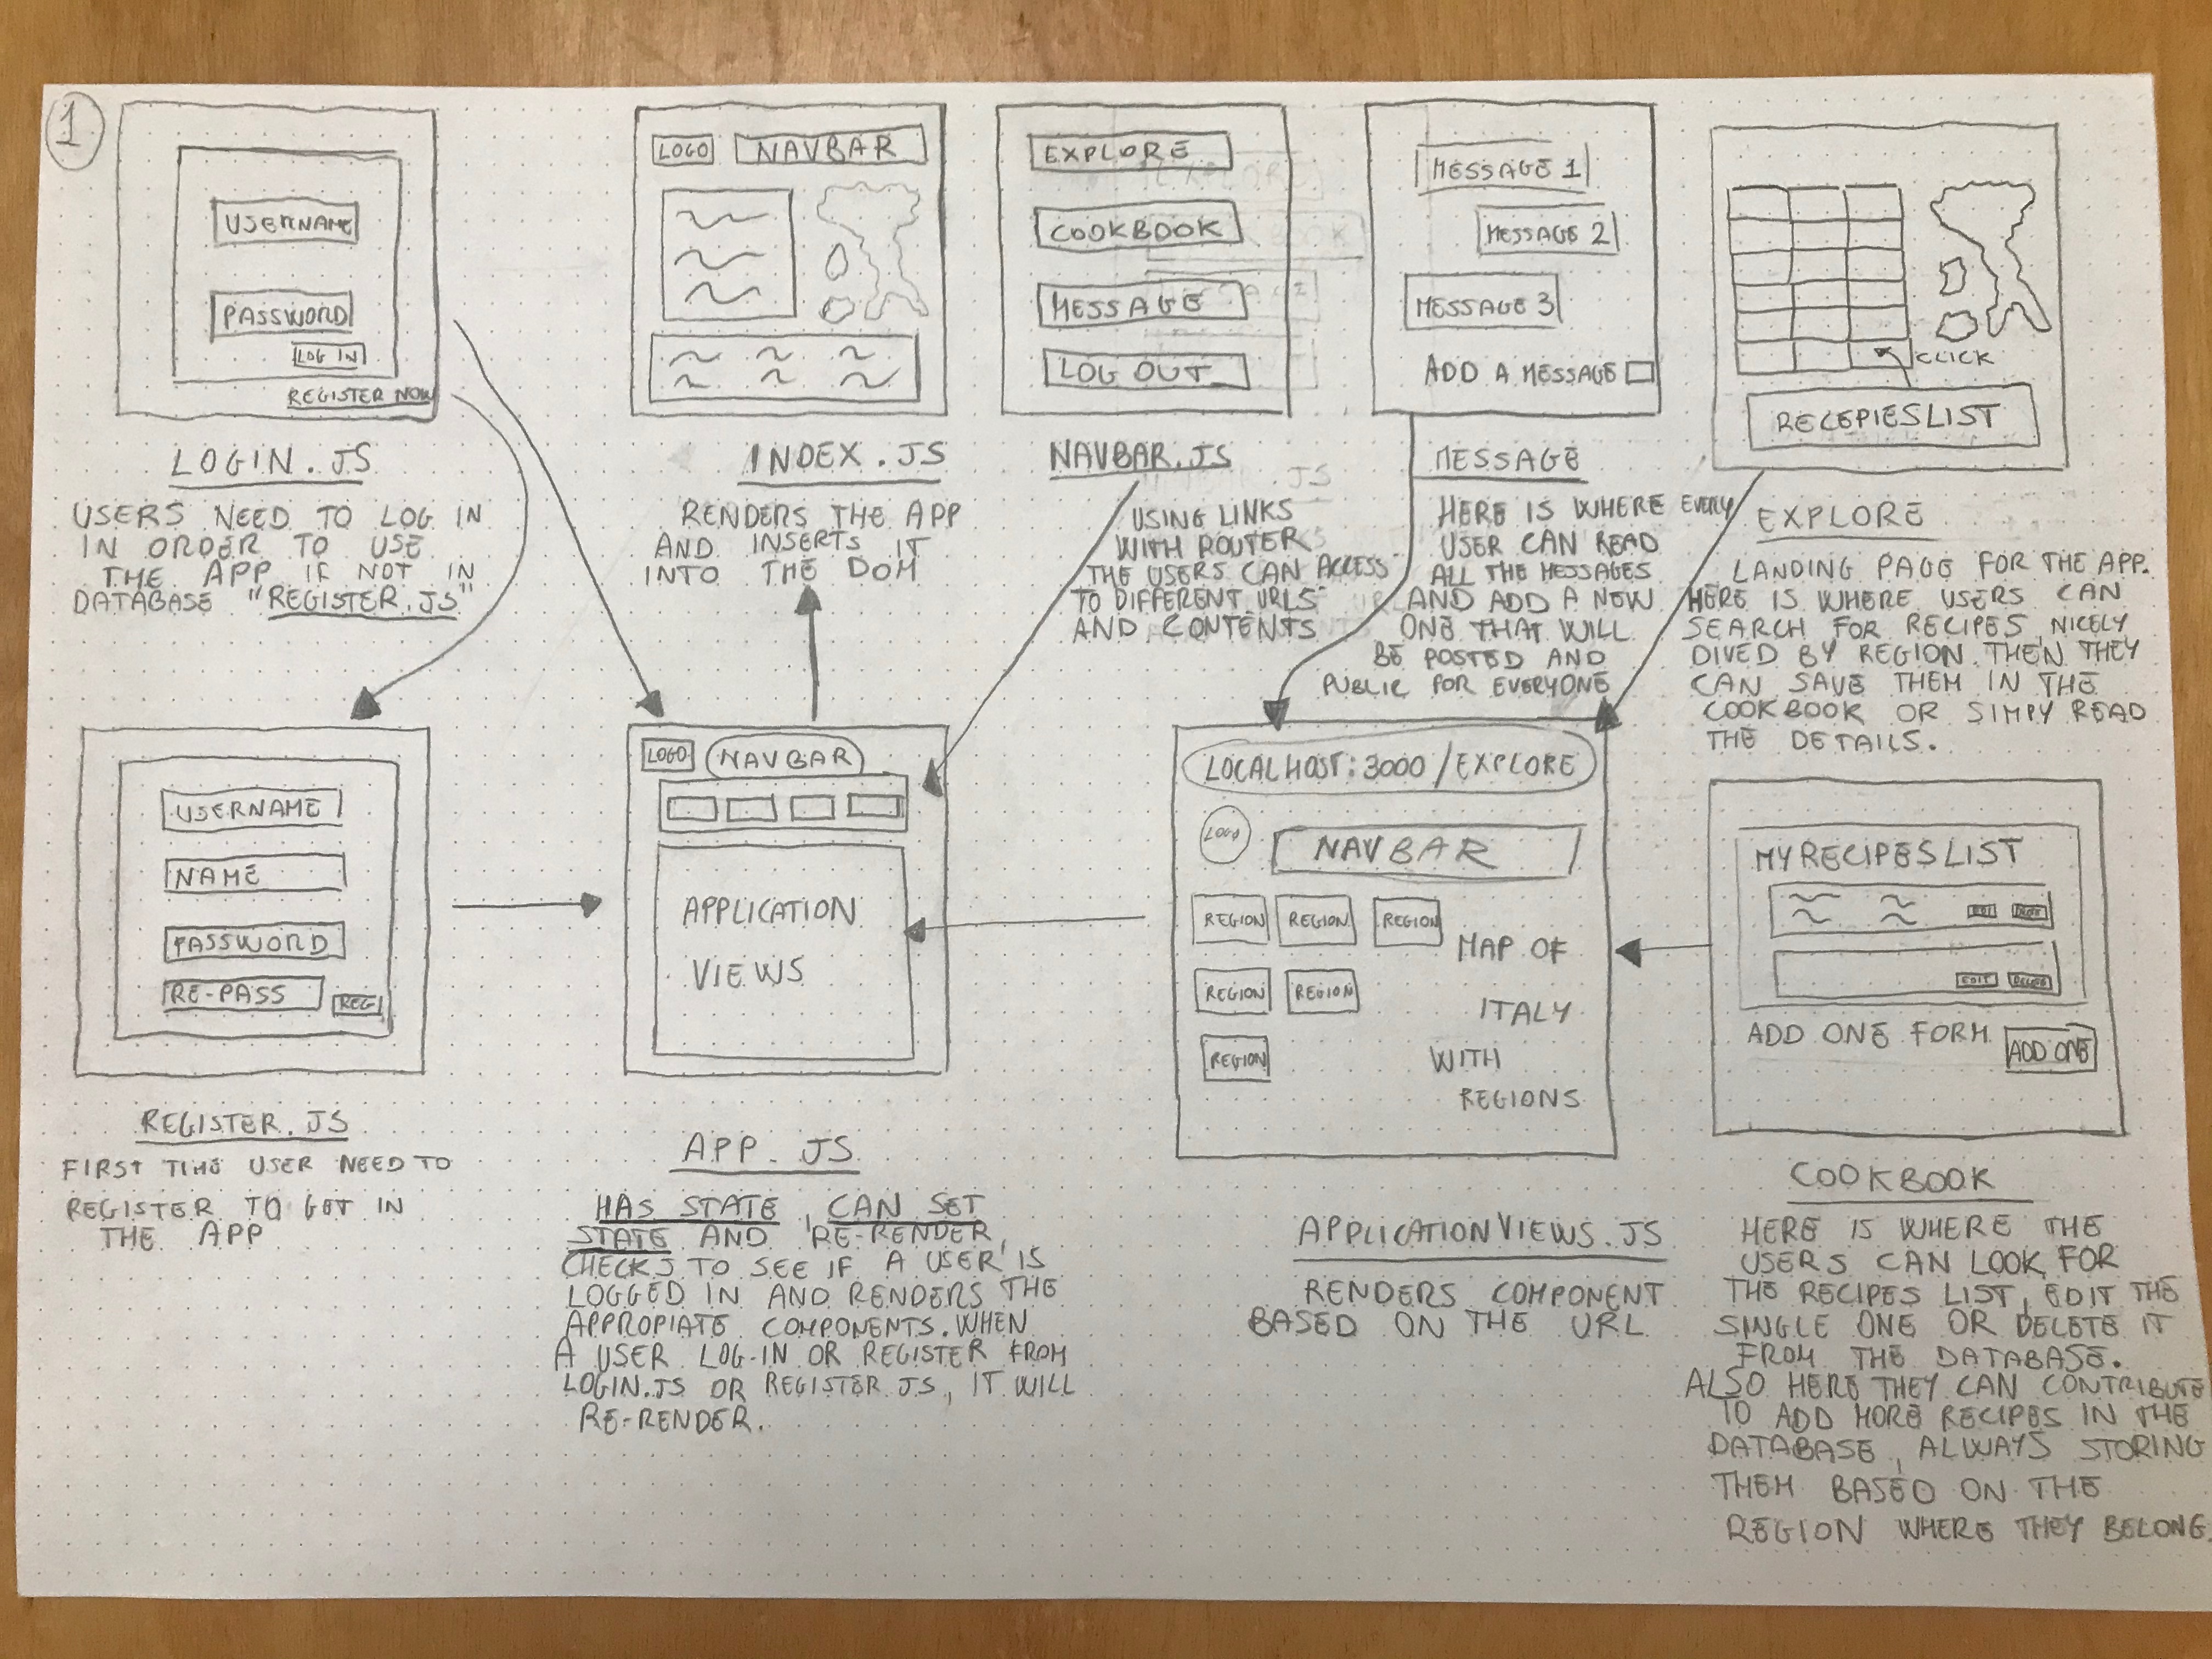 1
USERNAME
PASSWORD
LOG IN
REGISTER NOW
LOGIN.JS
USERS NEED TO LOG IN
IN ORDER TO USE
THE APP IF NOT IN
DATABASE "REGISTER.JS"
LOGO NAVBAR
INDEX.JS
RENDERS THE APP
AND INSERTS IT
INTO THE DOM
EXPLORE
COOKBOOK
MESSAGE
LOG OUT
NAVBAR.JS
USING LINKS
WITH ROUTER
THE USERS CAN ACCESS
TO DIFFERENT URLS
AND CONTENTS
MESSAGE 1
MESSAGE 2
MESSAGE 3
ADD A MESSAGE
MESSAGE
HERE IS WHERE EVERY
USER CAN READ
ALL THE MESSAGES
AND ADD A NEW
ONE THAT WILL
BE POSTED AND
PUBLIC FOR EVERYONE
CLICK
RECEPIESLIST
EXPLORE
LANDING PAGE FOR THE APP.
HERE IS WHERE USERS CAN
SEARCH FOR RECIPES, NICELY
DIVED BY REGION. THEN THEY
CAN SAVE THEM IN THE
COOKBOOK OR SIMPY READ
THE DETAILS.
USERNAME
NAME
PASSWORD
RE-PASS
REG
REGISTER.JS
FIRST TIME USER NEED TO
REGISTER TO GET IN
THE APP
LOGO NAVBAR
APPLICATION
VIEWS
APP.JS
HAS STATE, CAN SET
STATE AND RE-RENDER,
CHECKS TO SEE IF A USER IS
LOGGED IN AND RENDERS THE
APPROPIATE COMPONENTS. WHEN
A USER LOG-IN OR REGISTER FROM
LOGIN.JS OR REGISTER.JS, IT WILL
RE-RENDER.
LOCALHOST:3000/EXPLORE
LOGO
NAVBAR
REGION REGION REGION
REGION REGION
REGION
MAP OF
ITALY
WITH
REGIONS
APPLICATIONVIEWS.JS
RENDERS COMPONENT
BASED ON THE URL
MY RECIPES LIST
EDIT DELETE
ADD ONE FORM
ADD ONE
COOKBOOK
HERE IS WHERE THE
USERS CAN LOOK FOR
THE RECIPES LIST, EDIT THE
SINGLE ONE OR DELETE IT
FROM THE DATABASE.
ALSO HERE THEY CAN CONTRIBUTE
TO ADD MORE RECIPES IN THE
DATABASE, ALWAYS STORING
THEM BASED ON THE
REGION WHERE THEY BELONG.